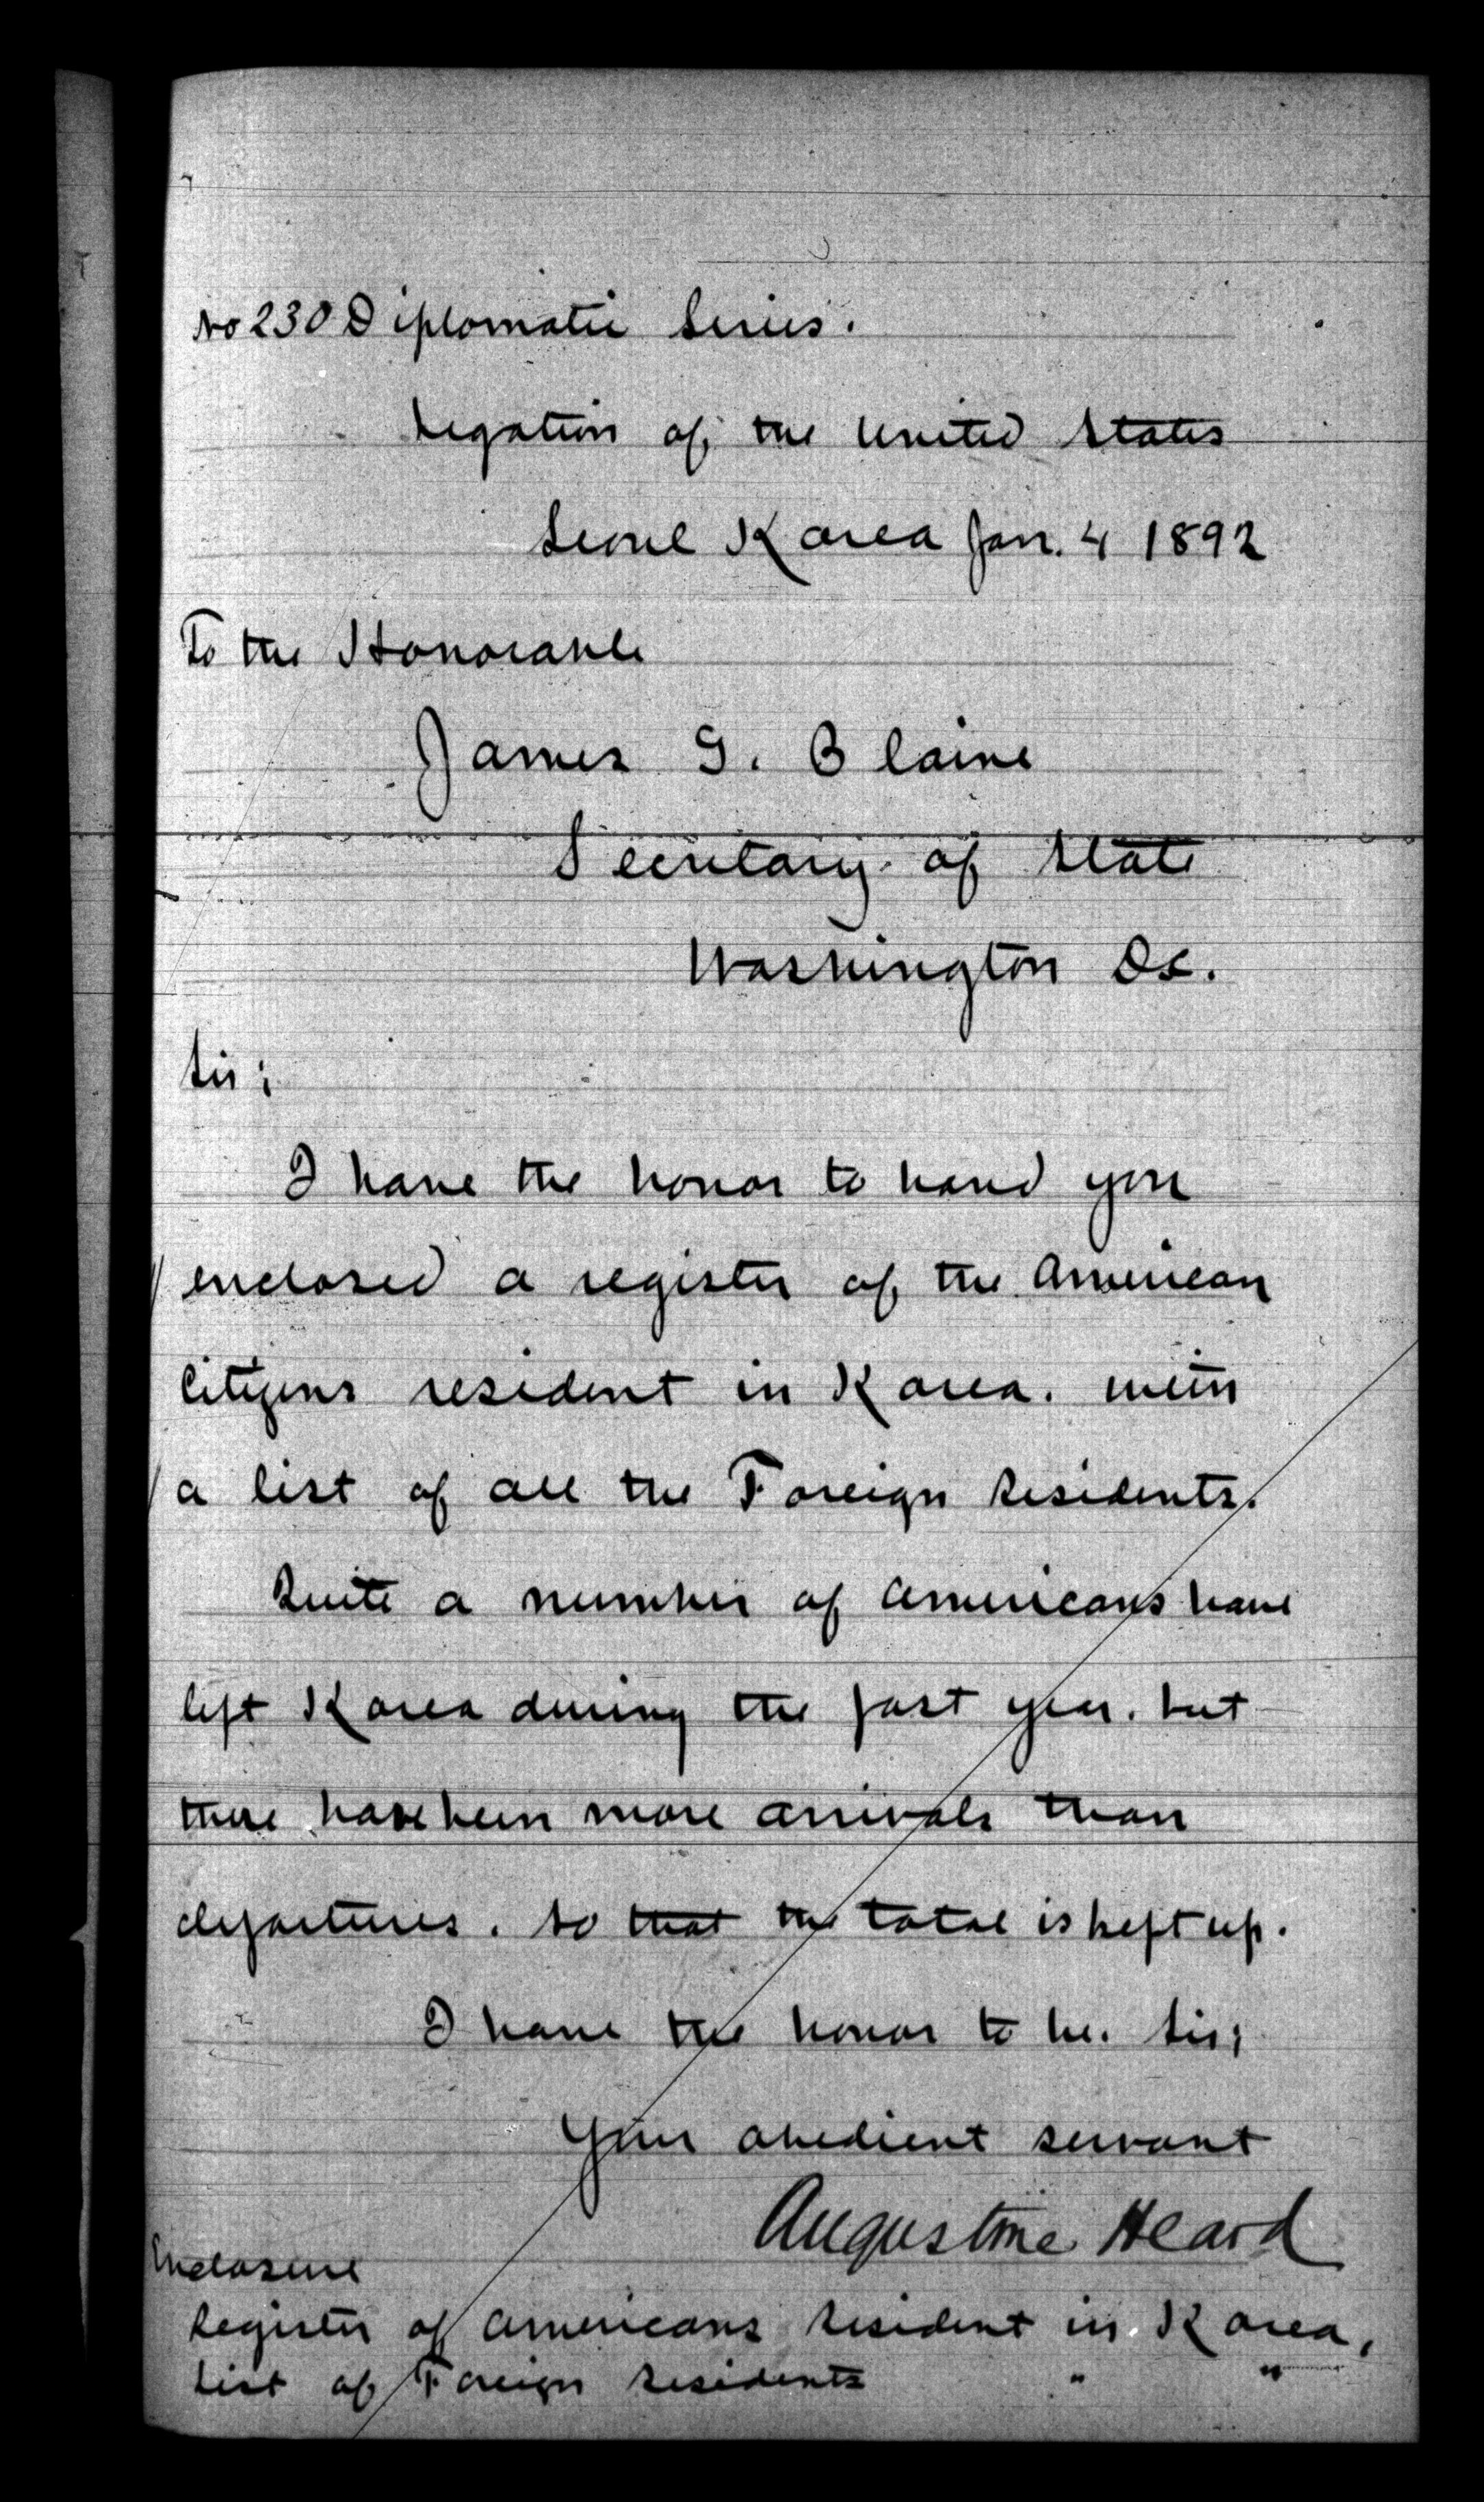 No 230 Diplomatic Series.
Legation of the United States
Seoul Korea Jan. 4 1892
To the Honorable
James G. Blaine
Secretary of State
Washington D.C.
Sir;
I have the honor to hand you
enclosed a register of the American
Citizens resident in Korea. with
a list of all the Foreign Residents.
Quite a number of Americans have
left Korea during the past year. but
there have been more arrivals than
departures. so that the total is kept up.
I have the honor to be. Sir;
Your obedient servant
Augustine Heard
Enclosure
Register of Americans Resident in Korea,
List of Foreign Residents " "